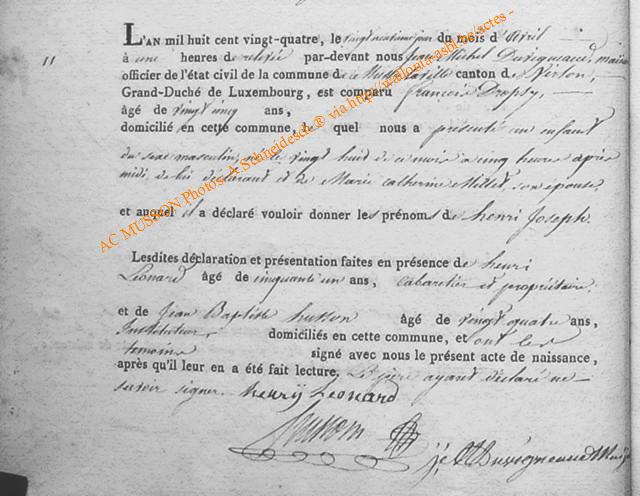 L'AN mil huit cent vingt-quatre, le vingt neuvieme jour du mois d'Avril
11
à une heures de relevée par-devant nous Jean Michel Duvigneaud, maire
officier de l'état civil de la commune de canton de Virton,
Grand-Duché de Luxembourg, est comparu francois Dropsy,
âgé de vingt cinq ans,
domicilié en cette commune, le quel nous a présenté un enfant
du sexe masculin, né le vingt huit de ce mois a cinq heures après
midi, de lui déclarant et de Marie Catherine Millet, son épouse,
et auquel il a déclaré vouloir donner les prénoms de henri Joseph.
Lesdites déclaration et présentation faites en présence de henri
Léonard âgé de cinquante un ans, cabaretier et propriétaire,
et de Jean Baptiste husson âgé de vingt quatre ans,
Instituteur domiciliés en cette commune, et ont les
temoins signé avec nous le présent acte de naissance,
après qu'il leur en a été fait lecture, Le père ayant déclaré ne
savoir signer. henrÿ Leonard
husson
Duvigneaud
AC MUSSON Photos A.Schneidesch ® via http://wallonia-asbl.be/actes -